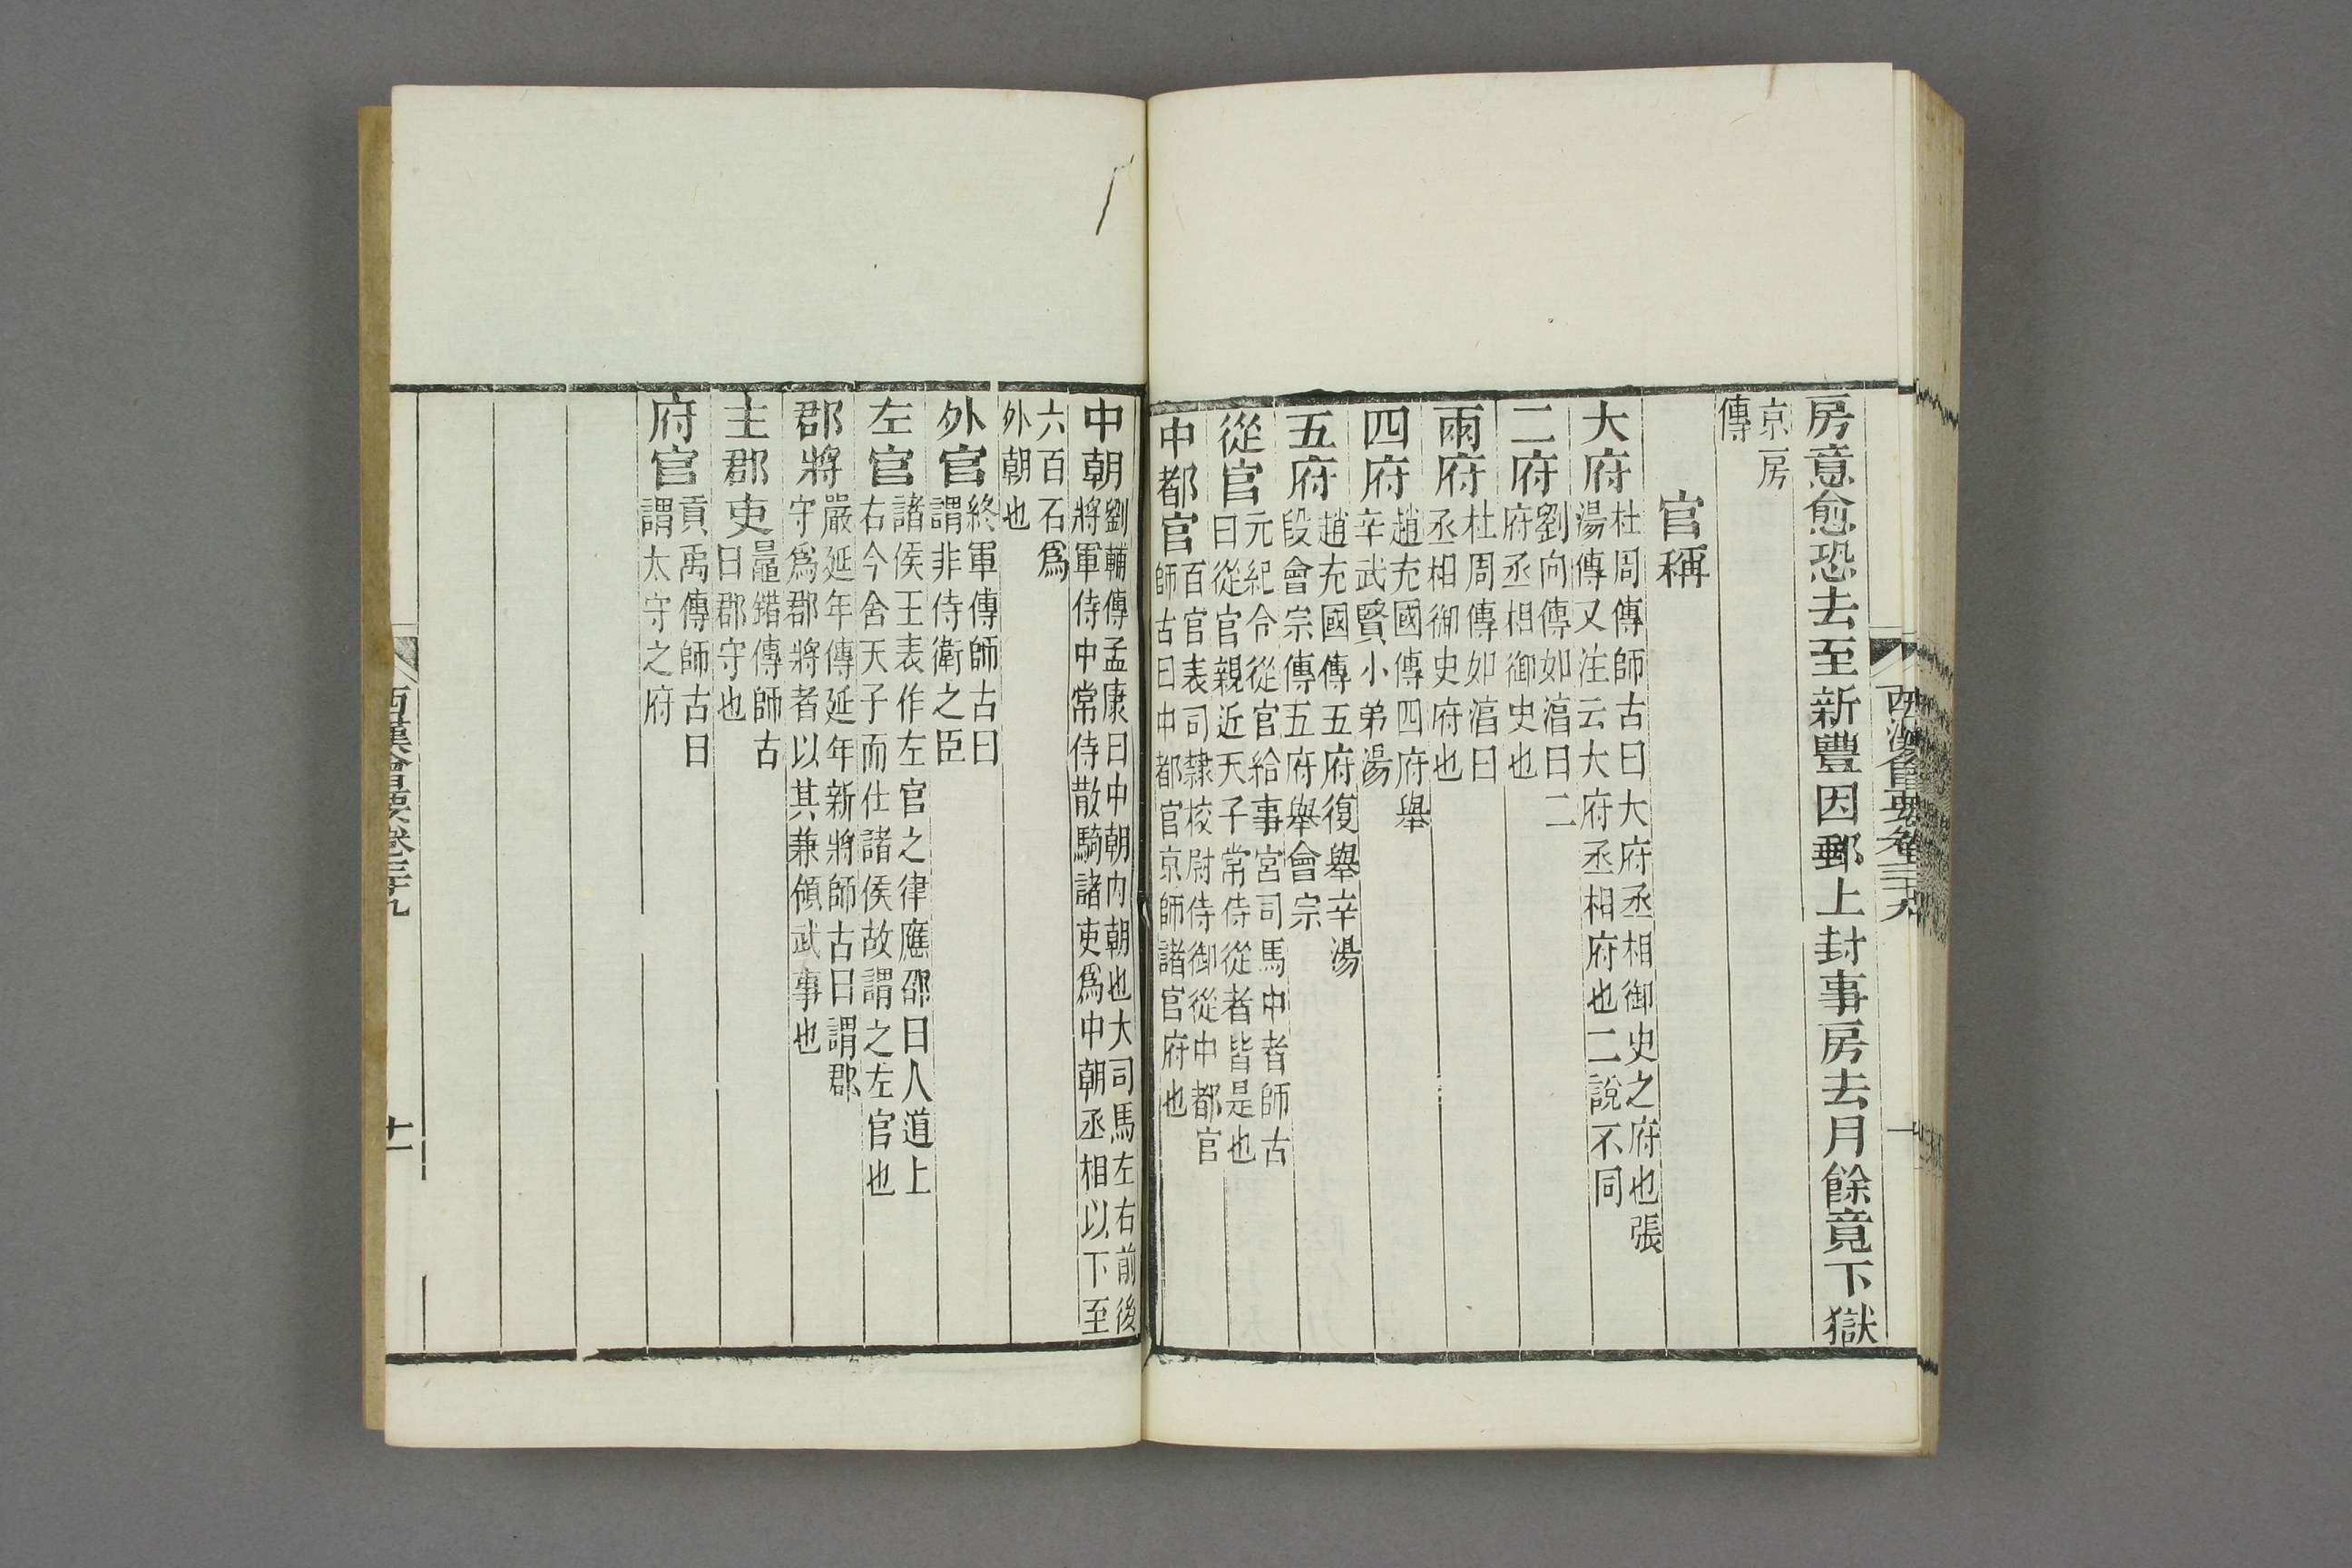 房意愈恐去至新豐因郵上封事房去月餘竟下獄
京房
傳
官稱
大府杜周傳師古曰大府丞相御史之府也張
湯傳又注云大府丞相府也二說不同
二府劉向傳如湻曰二
府丞相御史也
兩府杜周傳如湻曰
丞相御史府也
四府趙充國傳四府舉
辛武賢小弟湯
五府趙充國傳五府復舉辛湯
段會宗傳五府舉會宗
從官元紀令從官給事宮司馬中者師古
曰從官親近天子常侍從者皆是也
中都官百官表司隸校尉侍御從中都官
師古曰中都官京師諸官府也
西漢會要卷三十九
中朝劉輔傳孟康曰中朝內朝也大司馬左右前後
將軍侍中常侍散騎諸吏爲中朝丞相以下至
六百石爲
外朝也
外官終軍傳師古曰
謂非侍衛之臣
左官諸侯王表作左官之律應邵曰人道上
右今舍天子而仕諸侯故謂之左官也
郡將嚴延年傳延年新將師古曰謂郡
守爲郡將者以其兼領武事也
主郡吏鼂錯傳師古
曰郡守也
府官貢禹傳師古曰
謂太守之府
西漢會要卷三十九
十一